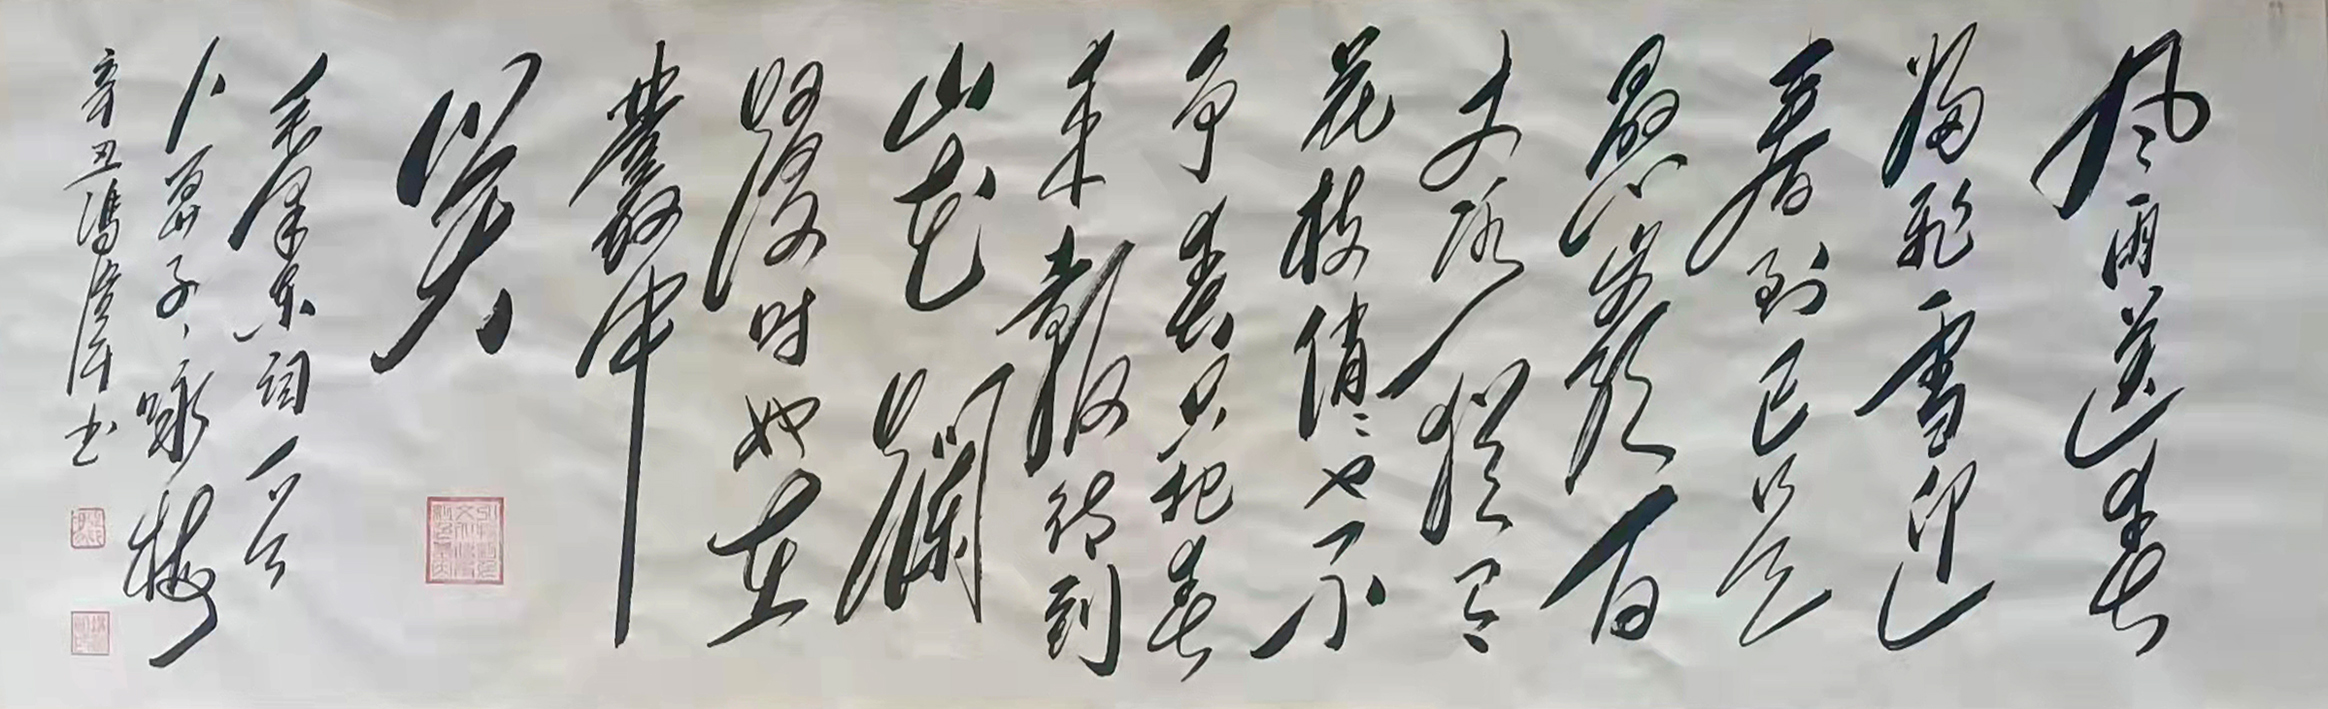 风雨送春
归飞雪迎
春到已是
悬崖百
丈冰犹有
花枝俏〻也不
争春只把春
来报待到
山花烂
漫时她在
丛中
笑
毛泽东词一首
卜算子、咏梅
辛丑冯书